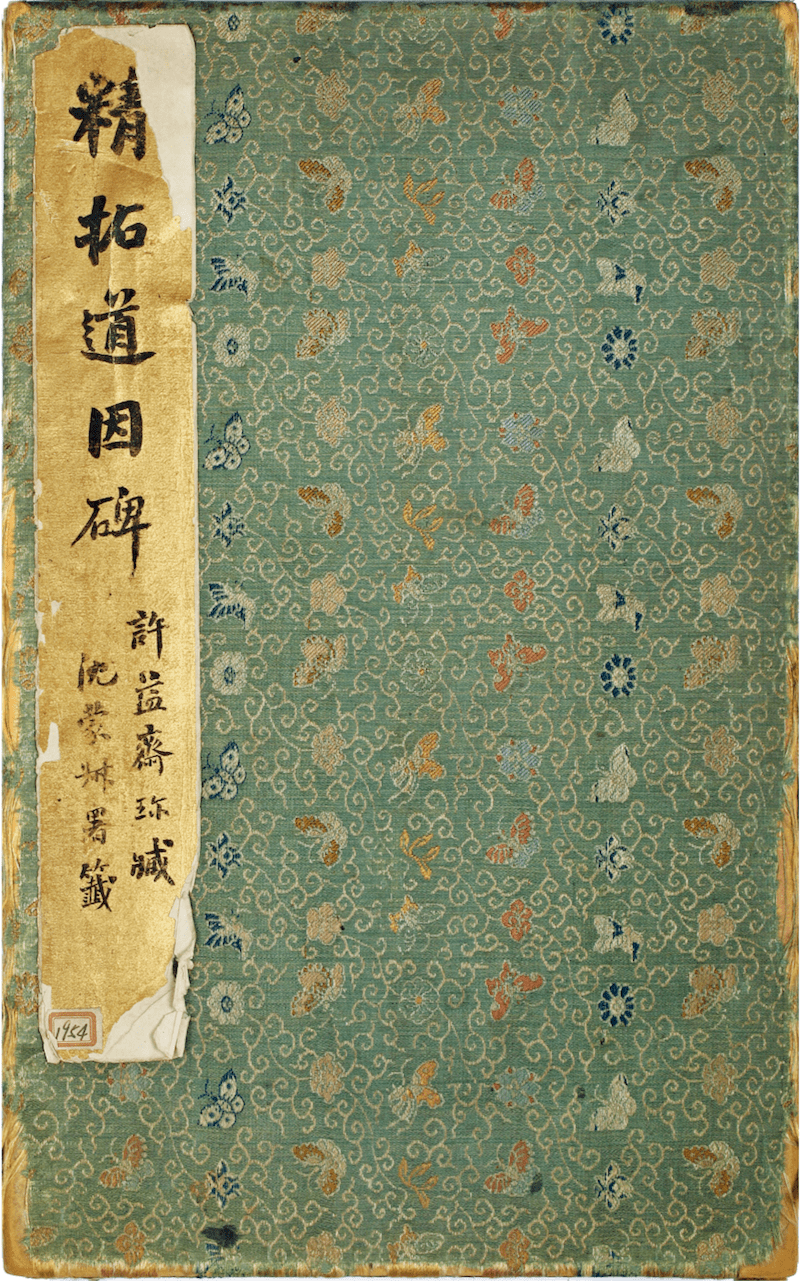 精拓道因碑
許益齋珎臧
沈蒙叔署籤
1954